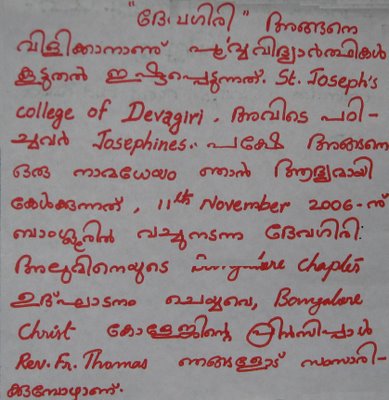 "ദേവഗിരി" അങ്ങനെ
വിളിക്കാനാണ് പൂർവ്വവിദ്യാർത്ഥികൾ
കൂടുതൽ ഇഷ്ടപ്പെടുന്നത്. St. Joseph's
college of Devagiri. അവിടെ പഠി-
ച്ചവർ Josephines.. പക്ഷേ അങ്ങനെ
ഒരു നാമധേയം ഞാൻ ആദ്യമായി
കേൾക്കുന്നത്, 11th November 2006-ന്
ബാംഗ്ലൂരിൽ വച്ചുനടന്ന ദേവഗിരി
അലുമിനെയുടെ chapter
ഉദ്ഘാടനം ചെയ്യവെ, Bangalore
Christ കോളേജിന്റെ പ്രിൻസിപ്പാൾ
Rev. Fr. Thomas ഞങ്ങളോട് സംസാരി-
ക്കുമ്പോഴാണ്.